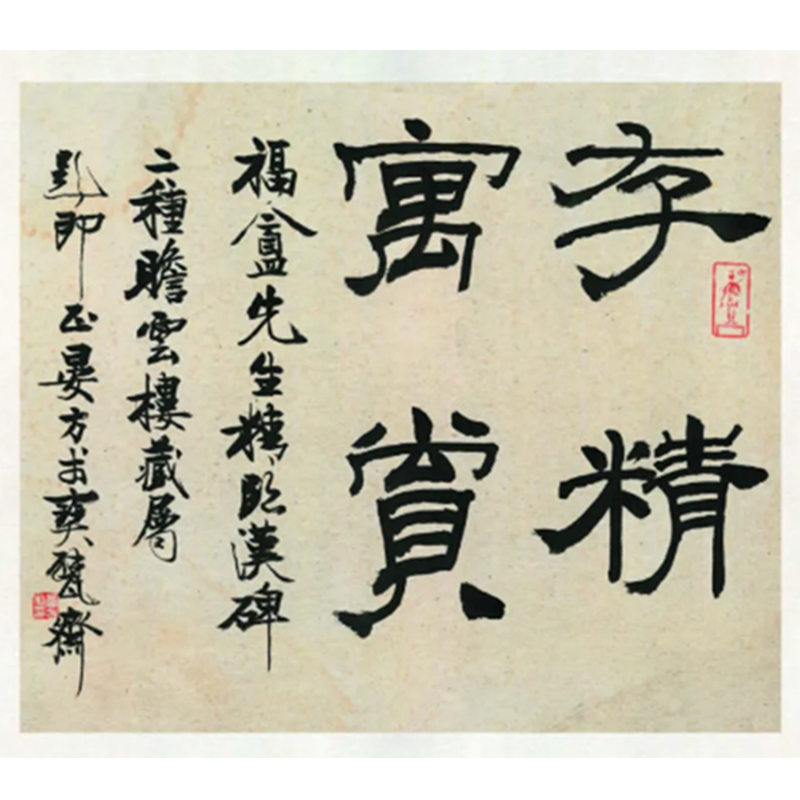 存精
寓賞
福盦先生臨漢碑
二種瞻雲樓藏屬
題即正晏方於爽甓齋